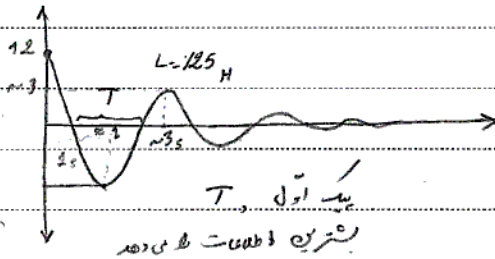 12
L=.125 H
~3
T
≈2
1s
~3s
پیک اول , T
بیشترین اطلاعات را می دهد